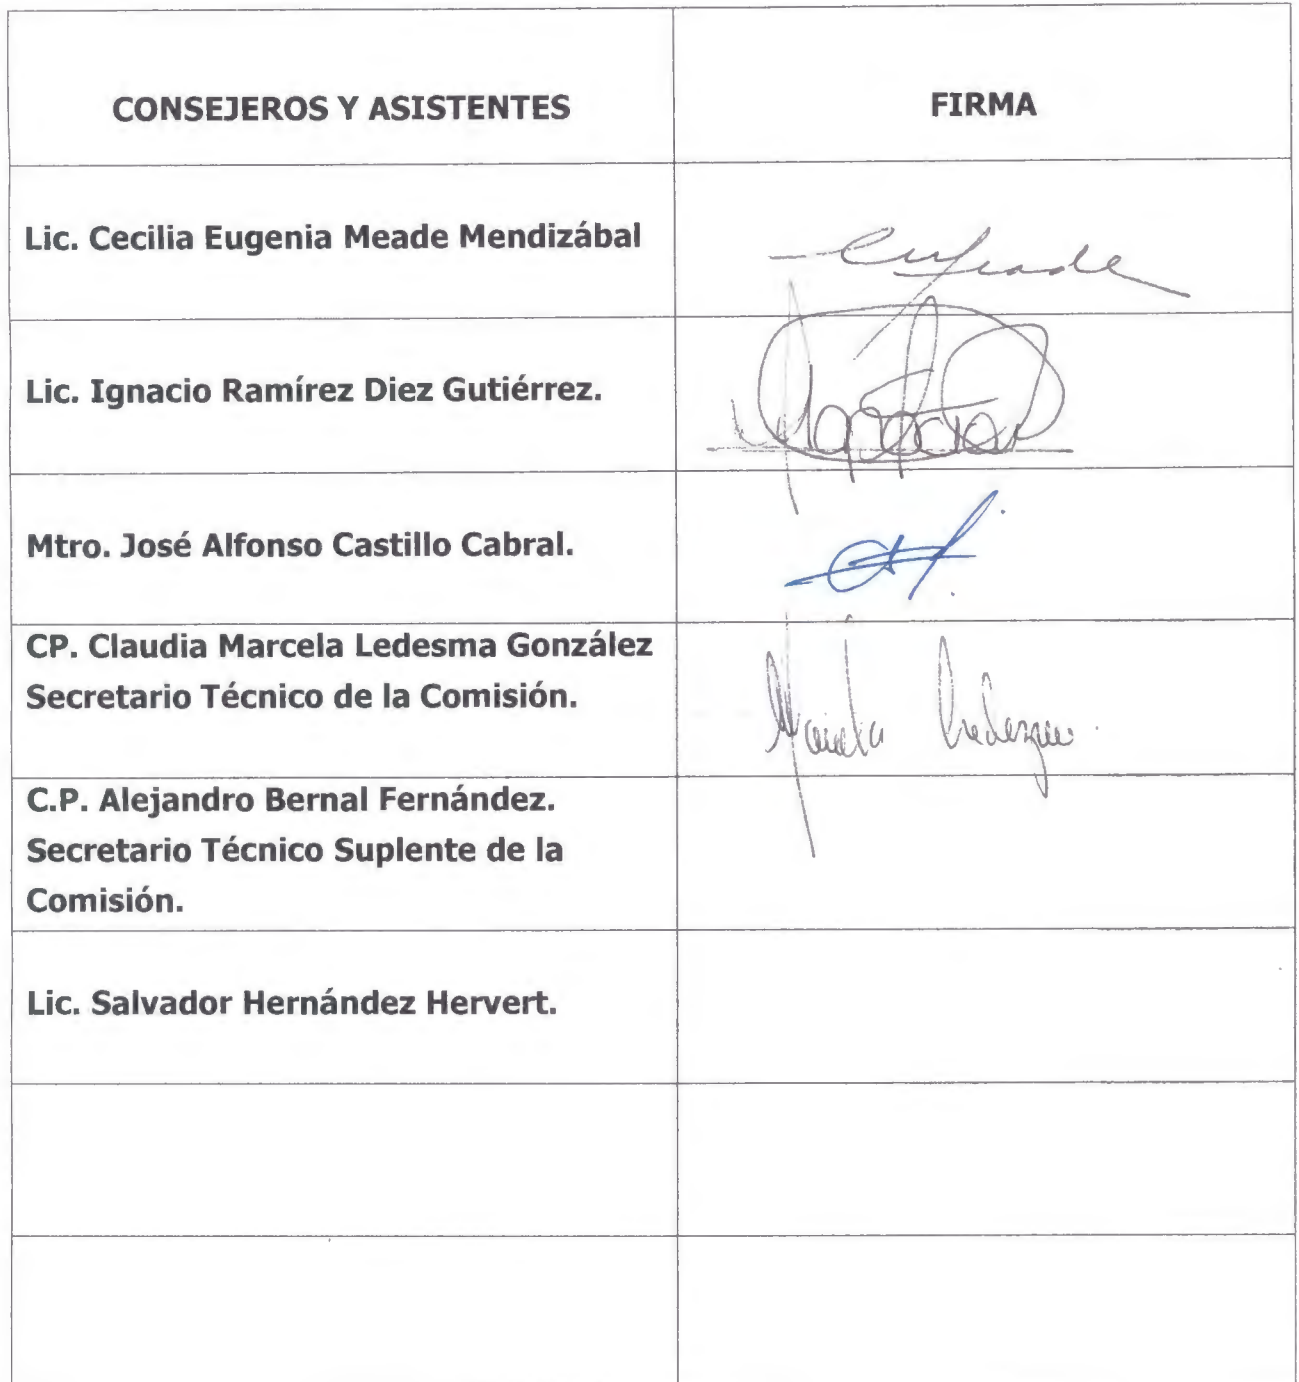 CONSEJEROS Y ASISTENTES
FIRMA
Lic. Cecilia Eugenia Meade Mendizábal
Lic. Ignacio Ramírez Diez Gutiérrez.
Mtro. José Alfonso Castillo Cabral.
CP. Claudia Marcela Ledesma González
Secretario Técnico de la Comisión.
C.P. Alejandro Bernal Fernández.
Secretario Técnico Suplente de la
Comisión.
Lic. Salvador Hernández Hervert.